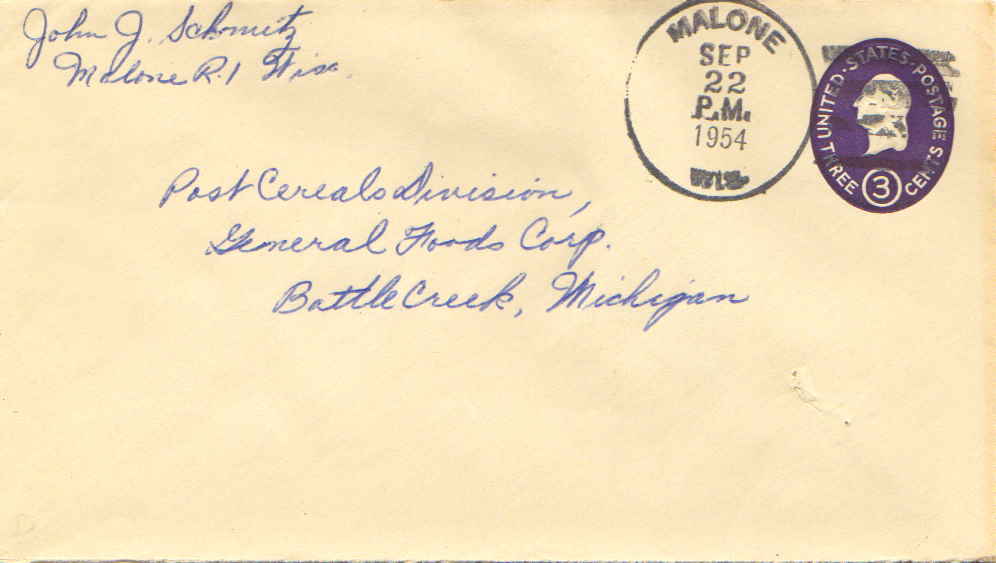 John J. Schmitz
Malone R.1 Wis.
MALONE
SEP
22
P.M.
1954
WIS.
UNITED·STATES·POSTAGE
THREE 3 CENTS
Post Cereals Division,
General Foods Corp.
Battle Creek, Michigan